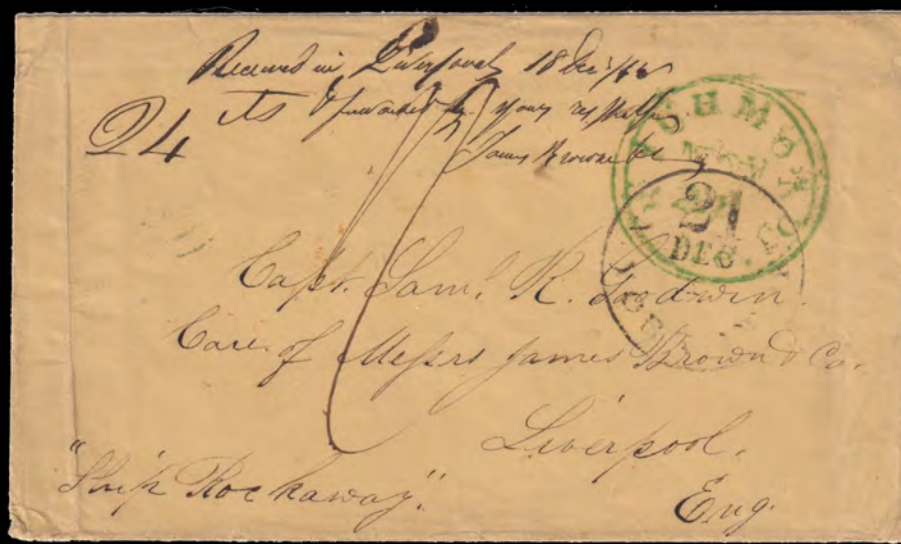 Received in Liverpool 18 Dec/
& forwarded by your
James Brown & Co
24 cts
RICHMOND
NOV
21
DEC.
Capt. Saml. R. Goodwin.
Care of Messrs James Brown & Co.
Liverpool.
"Ship Rockaway".
Eng.